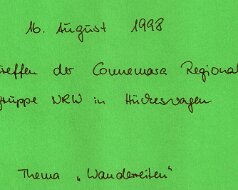 16. August 1998
treffen der Connemara Regional
gruppe NRW in Hückeswagen
Thema „Wanderreiten"